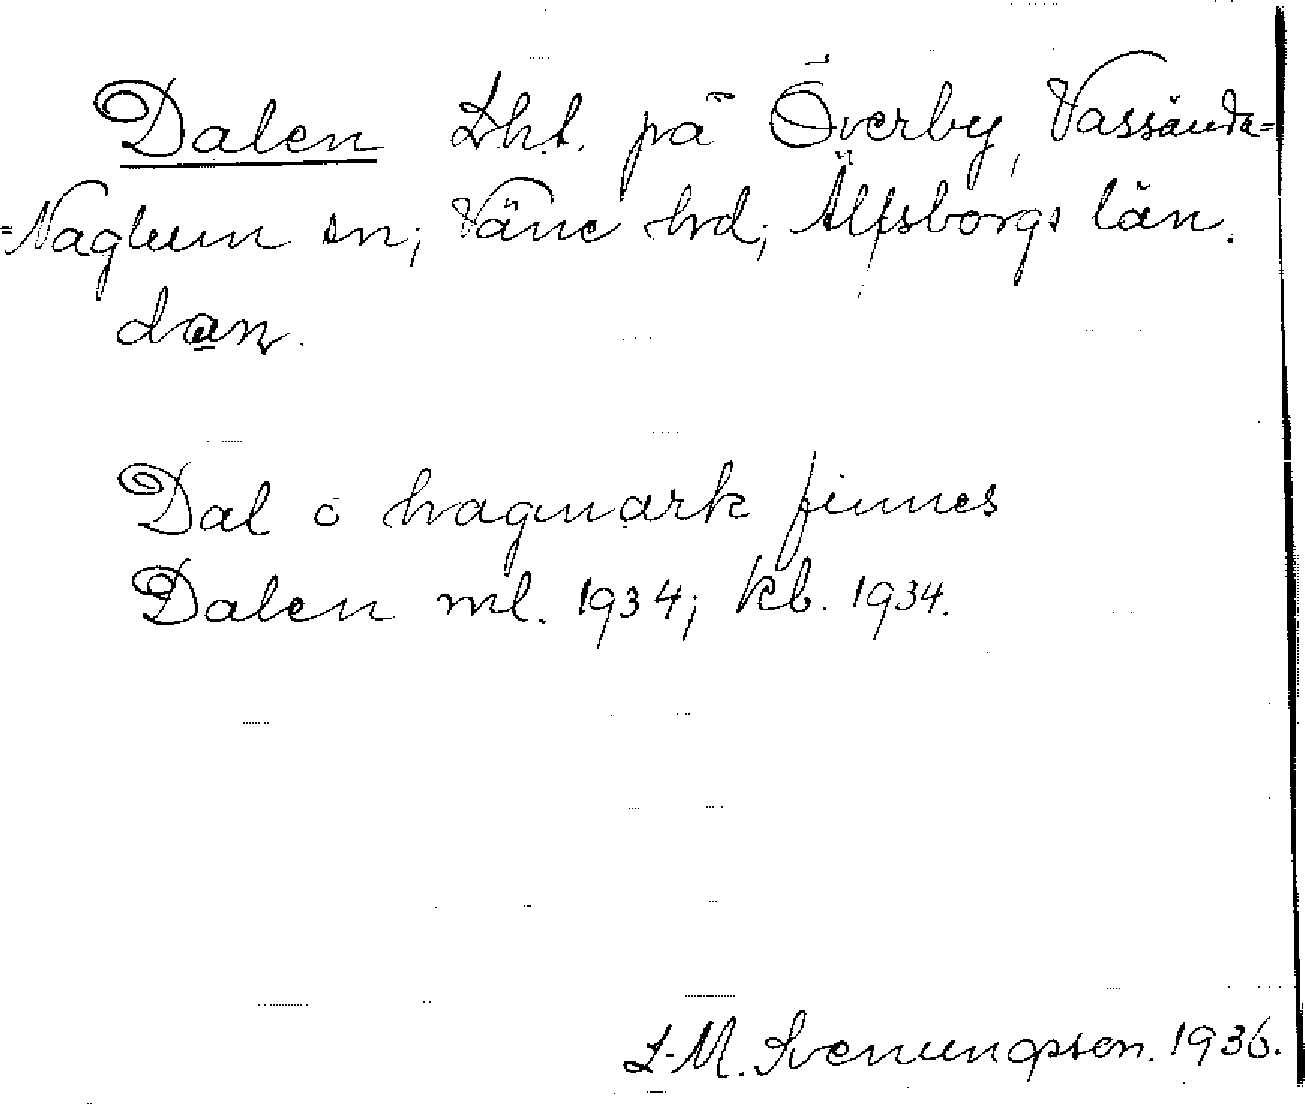 Dalen Lht. på Överby, Vassända-
=Naglum sn; Väne hd; Älfsborgs län.
dan.
Dal o hagmark finnes
Dalen ml. 1934; kb. 1934.
L.M. Svenungsson. 1936.